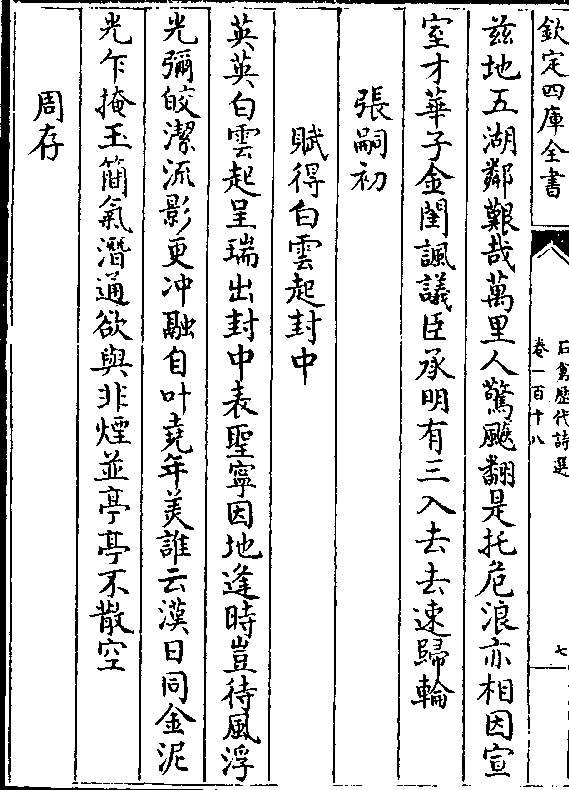 欽定四庫全書
石倉歷代詩選
卷一百十八
七
茲地五湖鄰艱哉萬里人驚飈翻是托危浪亦相因宣
室才華子金閨諷議臣承明有三入去去速歸輪
張嗣初
賦得白雲起封中
英英白雲起呈瑞出封中表聖寧因地逢時豈待風浮
光彌皎潔流影更冲融自叶堯年美誰云漢日同金泥
光乍掩玉簡氣潛通欲與非煙並亭亭不散空
周存